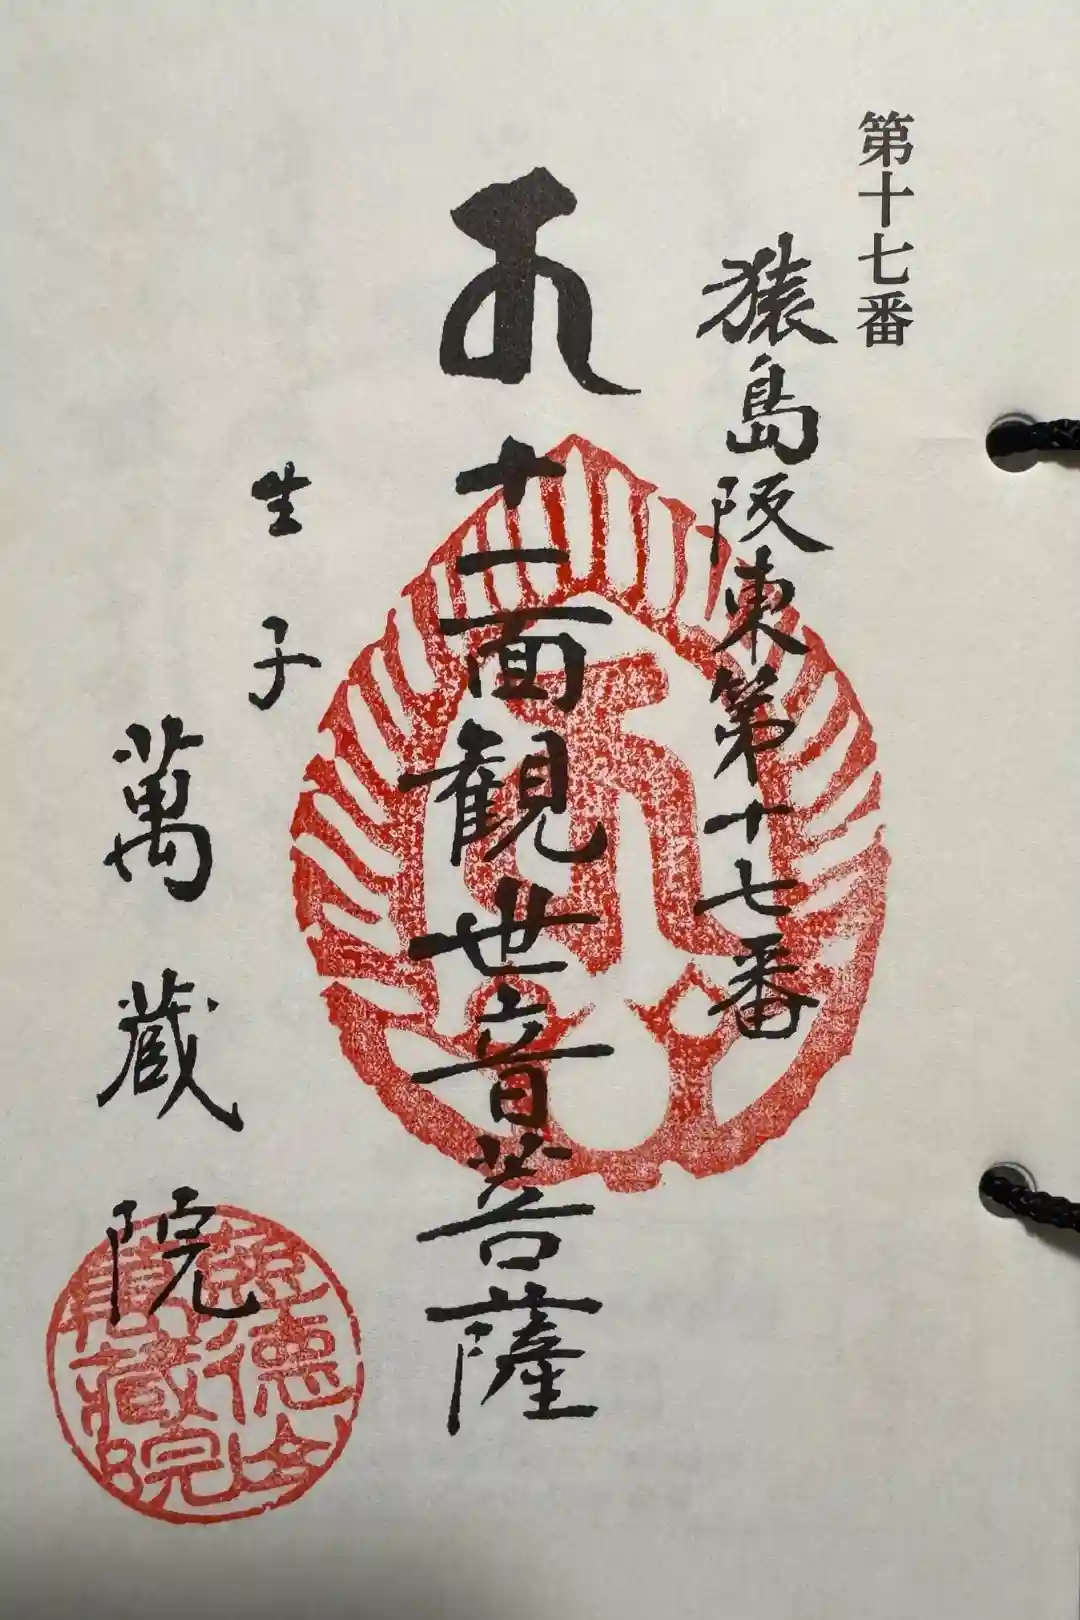 第十七番
猿島阪東第十七番
十一面観世音菩薩
生子
萬蔵院
徳山
萬藏院